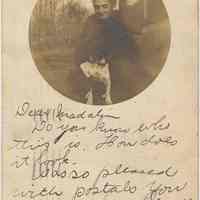 Dear Madalyn
Do you know who
this is. How does
it look.
Was so pleased
with postals you